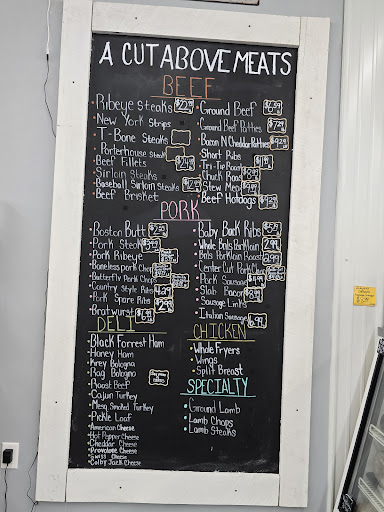 A CUT ABOVE MEATS
BEEF
Ribeye Steaks
New York Strips
T-Bone Steaks
Porterhouse Steak
Beef Fillets
Sirloin Steaks
Baseball Sirloin Steaks
Beef Brisket
Ground Beef
Ground Beef Patties
Bacon N Cheddar Patties
Short Ribs
Tri-Tip Roast
Chuck Roast
Stew Meat
Beef Hotdogs
PORK
Boston Butt
Pork Steak
Pork Ribeye
Boneless Pork Chop
Butterfly Pork Chop
Country Style Ribs
Pork Spare Ribs
Bratwurst
Baby Back Ribs
Whole Bnls Pork Loin 2.99
Bnls Pork Loin Roast 2.99
Center Cut Pork Chop
Pork Sausage
Slab Bacon
Sausage Links
Italian Sausage
DELI
Black Forrest Ham
Honey Ham
Krey Bologna
Rag Bologna
Roast Beef
Cajun Turkey
Mesq Smoked Turkey
Pickle Loaf
American Cheese
Hot Pepper Cheese
Cheddar Cheese
Provolone Cheese
Swiss Cheese
Colby Jack Cheese
CHICKEN
Whole Fryers
Wings
Split Breast
SPECIALTY
Ground Lamb
Lamb Chops
Lamb Steaks